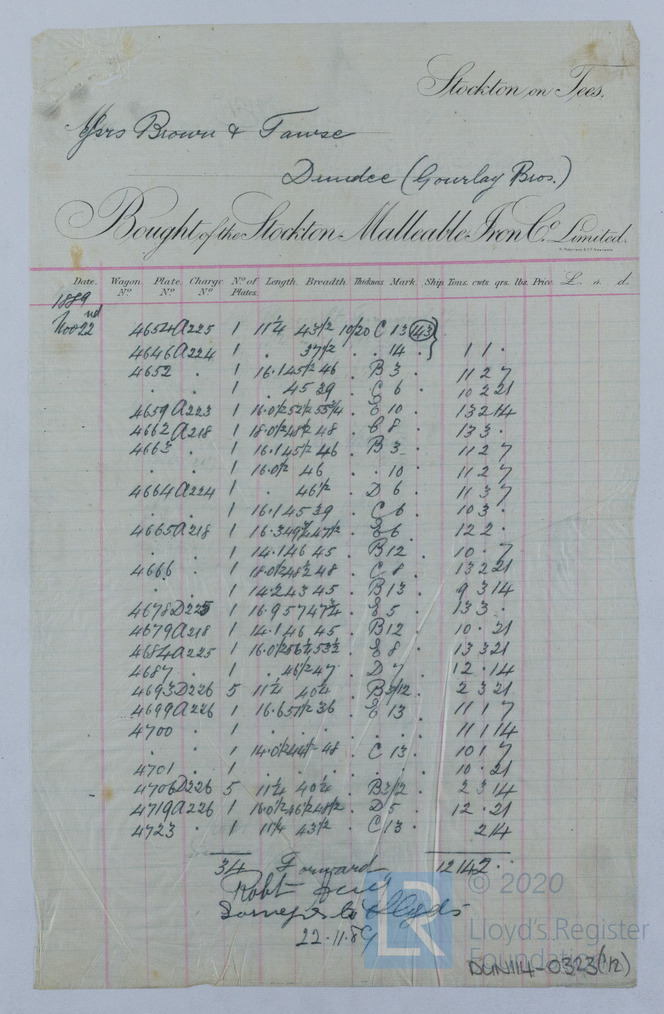 Stockton on Tees.
Msrs Brown & Fawse
Dundee (Gourlay Bros.)
Bought of the Stockton Malleable Iron Co. Limited.
Date. Wagon No. Plate No. Charge No. No. of Plates. Length. Breadth. Thickness Mark. Ship. Tons. cwts. qrs. lbs. Price. £ s. d.
1889
Nov 22nd 4654 A225 1 11¼ 43½ 10/20 C 13 43
4646 A224 1 . 37½ . . 14 . 1 1 .
4652 . 1 16.1 45½ 46 . B 3 . 11 2 7
. . 1 . 45 39 . C 6 . 10 2 21
4659 A223 1 . E 10 . 13 2 14
4662 A218 1 18.0½ 48½ 48 . C 8 . 13 3 .
4663 . 1 16.1 45½ 46 . B 3 . 11 2 7
. . 1 16.0½ 46 . . 10 . 11 2 7
4664 A224 1 . 46½ . D 6 . 11 3 7
. . 1 16.1 45 39 . C 6 . 10 3 .
4665 A218 1 16.3 . E 6 . 12 2 .
. . 1 14.1 46 45 . B 12 . 10 . 7
4666 . 1 18.0½ 48½ 48 . C 8 . 13 2 21
. . 1 14.2 43 45 . B 13 . 9 3 14
4678 D225 1 16.9 57 47¾ . E 5 . 13 3 .
4679 A218 1 14.1 46 45 . B 12 . 10 . 21
4684 A225 1 16.0½ . E 8 . 13 3 21
4687 . 1 . 46½ 47 . D 7 . 12 . 14
4693 D226 5 11¼ 40¼ . B 3/12 . 2 3 21
4699 A226 1 16.6 51½ 36 . E 13 . 11 1 7
4700 . 1 . . . . . . 11 1 14
. . 1 14.0½ 44½ 48 . C 13 . 10 1 7
4701 . 1 . . . . . . 10 . 21
4706 D226 5 11¼ 40¼ . B 3/12 . 2 3 14
4719 A226 1 16.0½ 46½ 48½ . D 5 . 12 . 21
4723 . 1 11¼ 43½ . C 13 . 2 14
34 Forward 12 14 2 .
Robt
Surveyor to Lloyds
22.11.89
© 2020
LR
Lloyd's Register
Foundation
DUN114-0323(1/2)